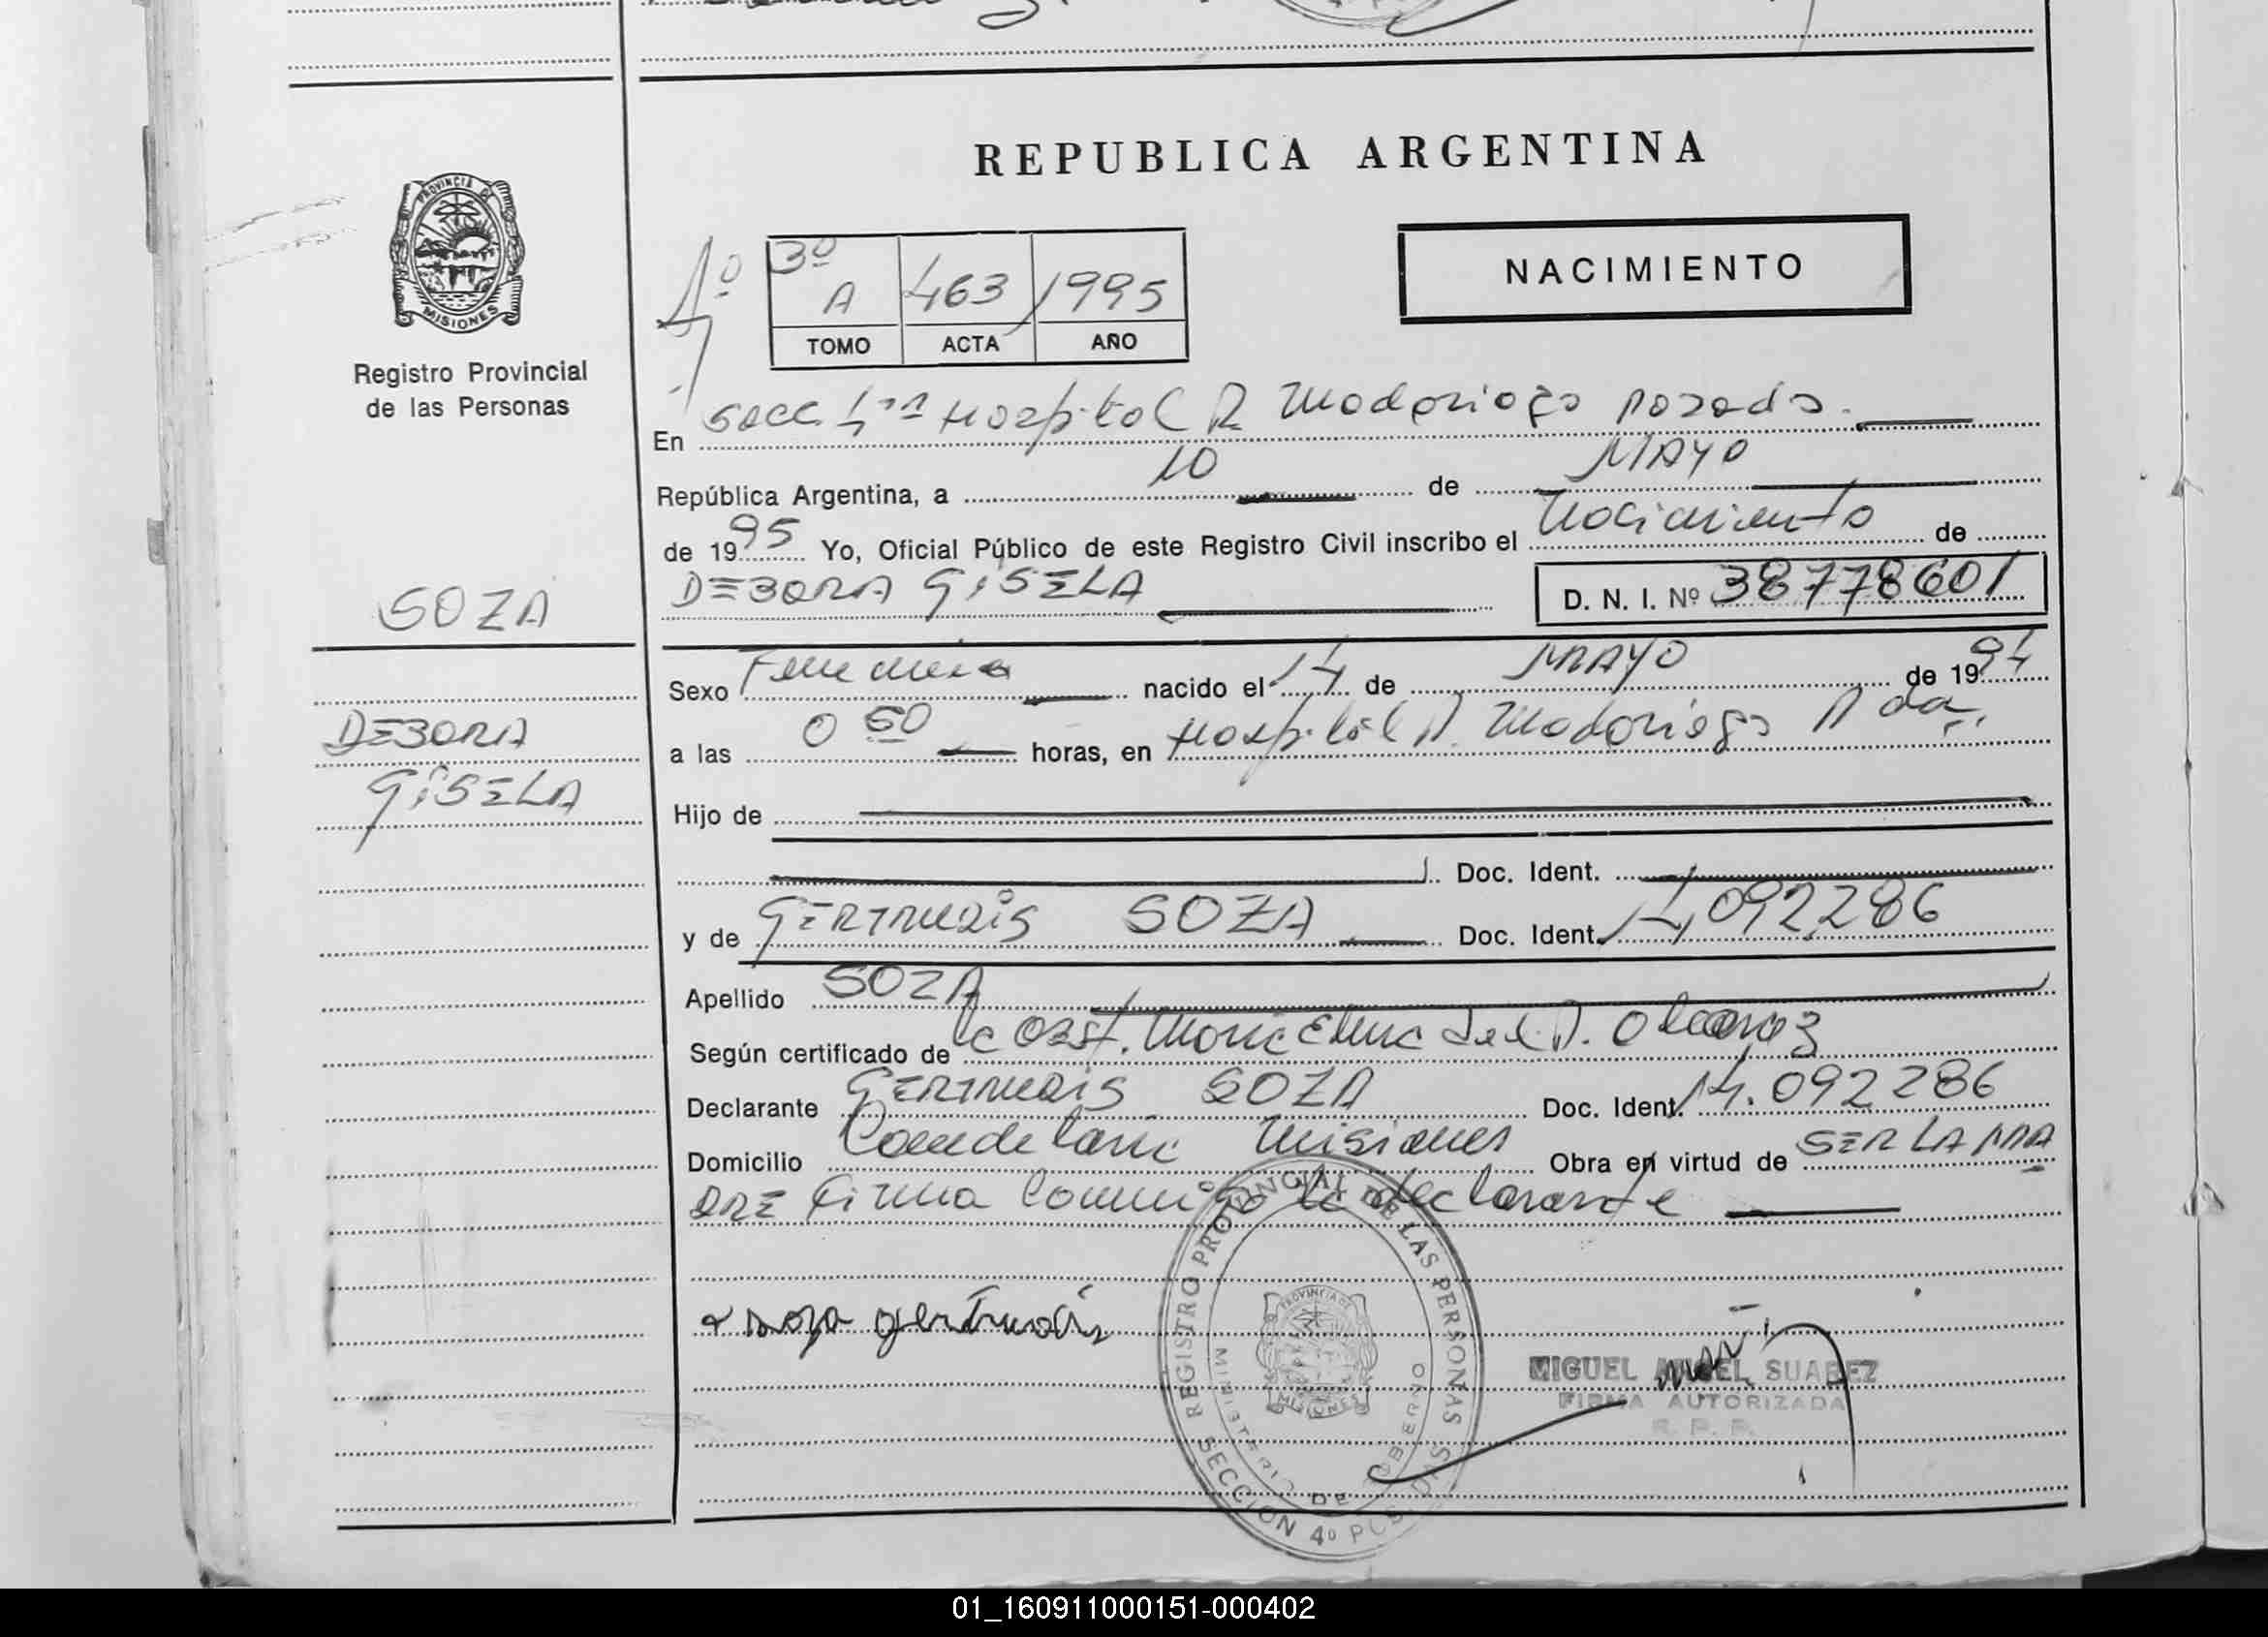 REPUBLICA ARGENTINA
PROVINCIA DE
MISIONES
Registro Provincial
de las Personas
NACIMIENTO
4º
3º
A 463 1995
TOMO ACTA AÑO
En Secc 4ta Hospital R Madariaga Posadas.
República Argentina, a 10 de MAYO
de 1995 Yo, Oficial Público de este Registro Civil inscribo el Nacimiento de
DEBORA GISELA D. N. I. Nº 38778601
SOZA
DEBORA
GISELA
Sexo Femenino nacido el 14 de MAYO de 1994
a las 0 50 horas, en Hospital R. Madariaga Pdas.
Hijo de
Doc. Ident.
y de GERTRUDIS SOZA Doc. Ident. 14,092,286
Apellido SOZA
Según certificado de la Obst. Maria Elena del
Declarante GERTRUDIS SOZA Doc. Ident. 14.092286
Domicilio Candelaria Misiones Obra en virtud de SER LA MA
DRE Firma Conmigo la declarante
Soza gertrudis
REGISTRO PROVINCIAL DE LAS PERSONAS
MINISTERIO DE GOBIERNO
PROVINCIA DE
MISIONES
SECCION 4º POSADAS
MIGUEL ANGEL SUAREZ
FIRMA AUTORIZADA
R. P. P.
01_160911000151-000402